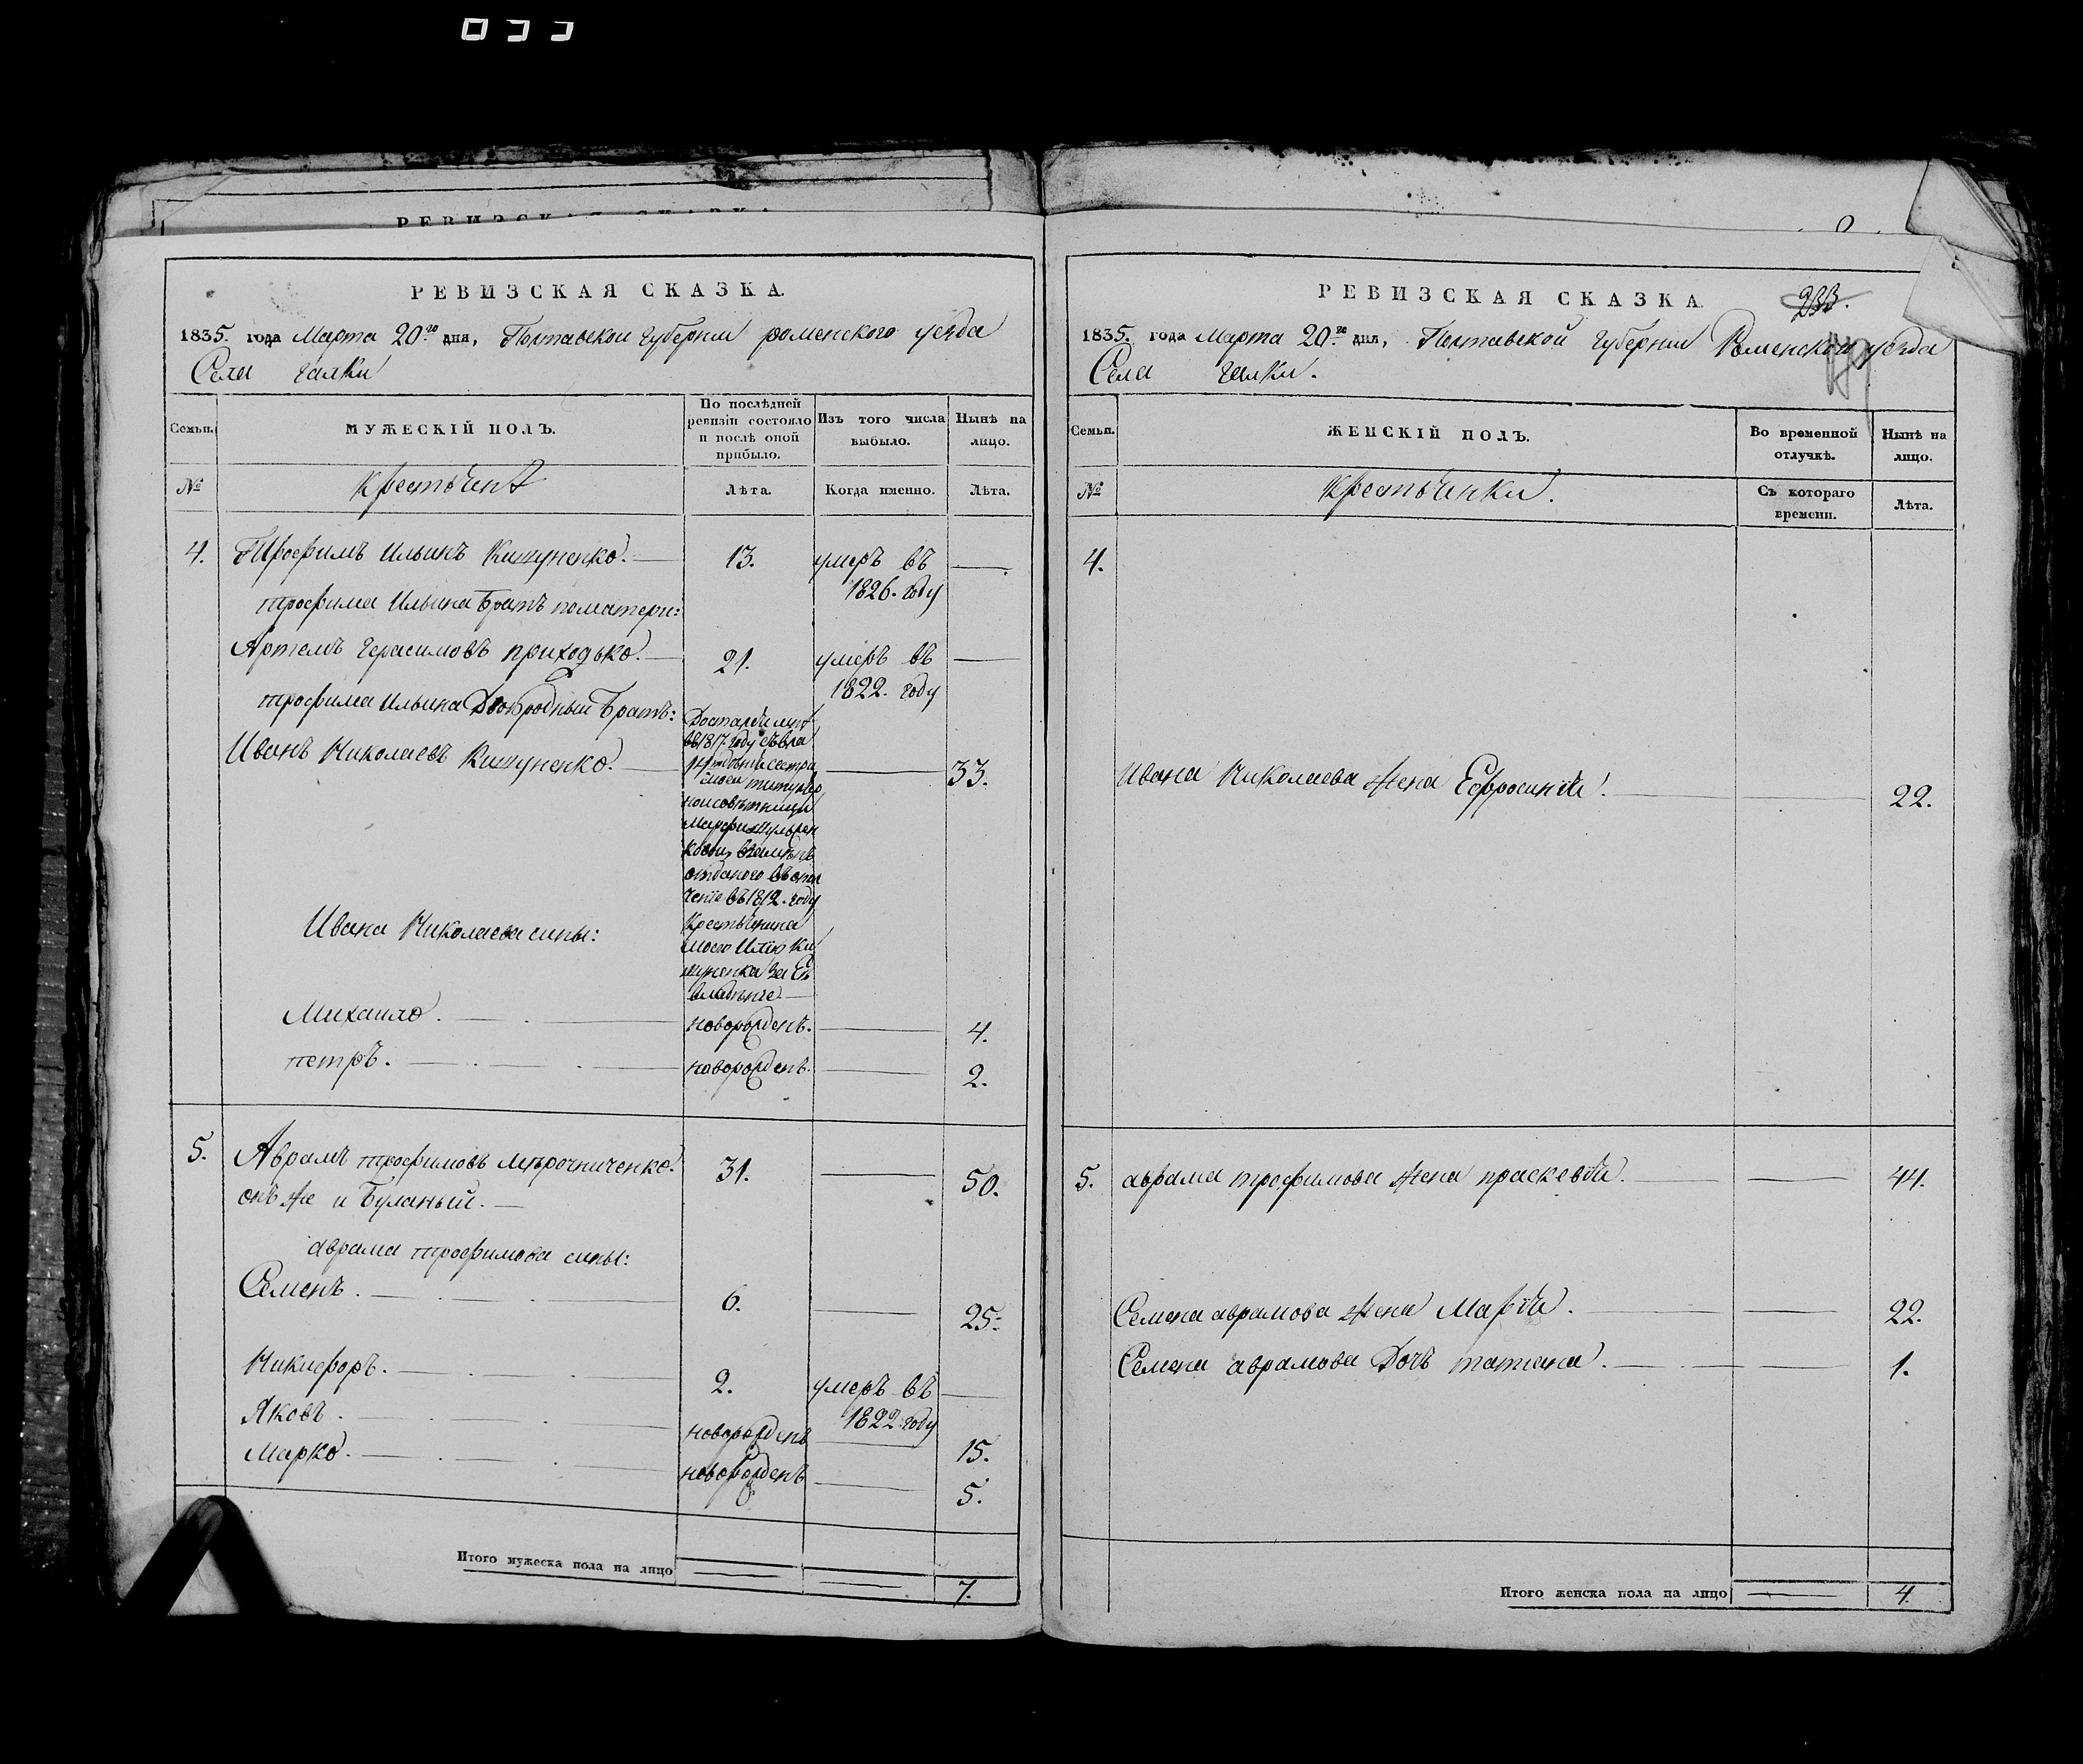 РЕВИЗСКАЯ СКАЗКА.
1835. года Марта 20го дня, Полтавской Губернии роменского уезда
Села галки
Семьи. МУЖЕСКІЙ ПОЛЪ. По послѣдней ревизіи состояло и послѣ оной прибыло. Изъ того числа выбыло. Нынѣ на лицо.
№ крестьяне Лѣта. Когда именно. Лѣта.
4. Трофимъ Ильинъ Кишуненко. 13. умеръ въ 1826. году
трофима Ильина Братъ поматери:
Артемъ Герасимовъ приходько. 21. умеръ въ 1822. году
трофима Ильина Двоюродный Братъ:
Иванъ Николаевъ Кишуненко. 33.
Досталси мне
въ 1817 году
сестри
моей титуляр
ной советници
Марфи
взаменъ
отданого въ опол
чение въ 1812. году
крестьянина
моего Илию Ки
шуненка за Ея
владение
Ивана Николаева сины:
Михаило. новорожденъ. 4.
петръ. новорожденъ. 2.
5. Аврамъ трофимовъ Мѣрочниченко. 31. 50.
онъ же и Буланый.
аврама трофимова сины:
Семенъ. 6. 25.
Никифоръ. 2. умеръ въ 1822. году
Яковъ. новорожденъ 15.
Марко. новорожденъ 5.
Итого мужеска пола на лицо 7.
РЕВИЗСКАЯ СКАЗКА.
233.
1835. года Марта 20го дня, Полтавской Губернии Роменского уезда
Села галки.
Семьи. ЖЕНСКІЙ ПОЛЪ. Во временной отлучкѣ. Нынѣ на лицо.
№ крестьянки. Съ котораго времени. Лѣта.
4.
Ивана Николаева жена Ефросинія. 22.
5. аврама трофимова жена праскевія. 44.
Семена аврамова жена Марія. 22.
Семена аврамова Дочь татиана. 1.
Итого женска пола на лицо 4.